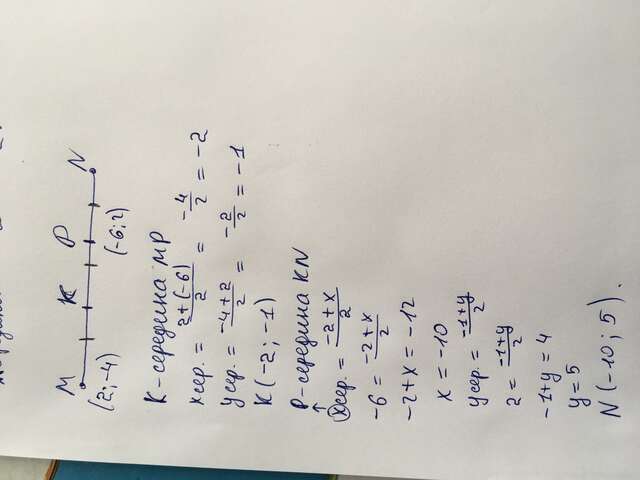 M K P N
(2; -4) (-6; 2)
K - середина MP
xсер. = \frac{2+(-6)}{2} = -\frac{4}{2} = -2
yсер. = \frac{-4+2}{2} = -\frac{2}{2} = -1
K(-2; -1)
P - середина KN
xсер. = \frac{-2+x}{2}
-6 = \frac{-2+x}{2}
-2+x = -12
x = -10
yсер. = \frac{-1+y}{2}
2 = \frac{-1+y}{2}
-1+y = 4
y = 5
N(-10; 5).